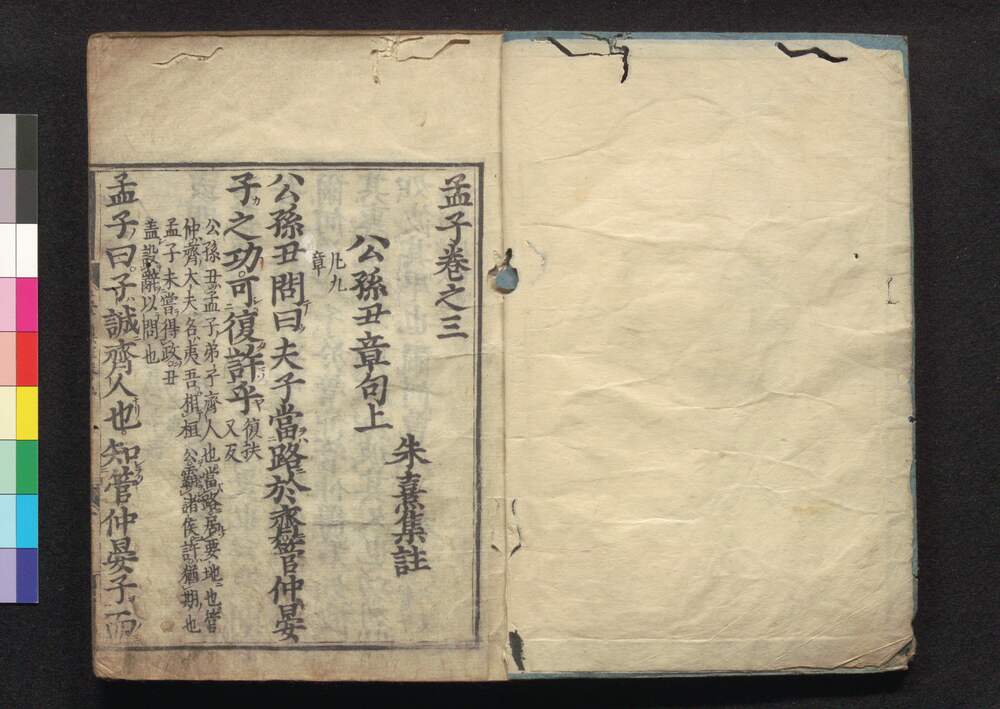 孟子卷之三
朱熹集註
公孫丑章句上
凡九
章
公孫丑問曰夫子當路於齊管仲晏
子之功可復許乎
復扶
又反
公孫丑孟子弟子齊人也當路居要地也管
仲齊大夫名夷吾相桓公霸諸侯許猶期也
孟子未嘗得政丑
蓋設辭以問也
孟子曰子誠齊人也知管仲晏子而